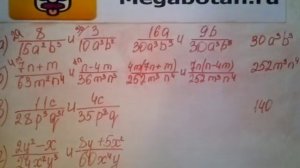 Megabotan.ru
а) 8/15a²b⁵ и 3/10a³b³ 16a/30a³b⁵ и 9b/30a³b⁵ 30a³b⁵
7n+m/63m²n⁴ и n-4m/36m³n⁴ 4m(7n+m)/252m³n⁴ и 7(n-4m)/252m³n⁴ 252m³n⁴
11c/28p³q⁵ и 4c/35p⁹q 140
2y²-x/24x²y³ и 3y+5x²/60x⁴y